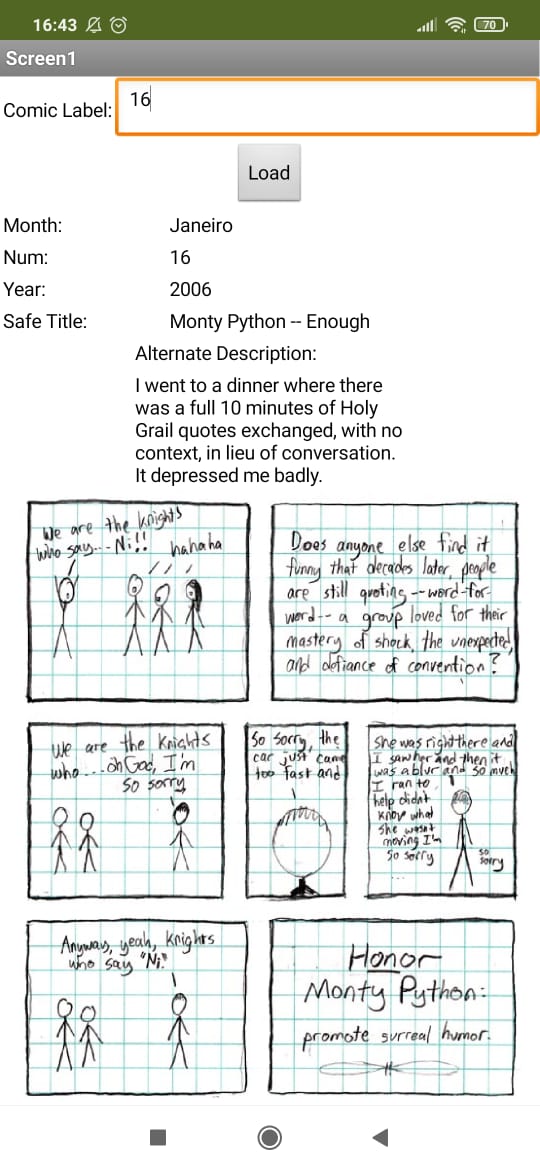 16:43
70
Screen1
Comic Label:
16
Load
Month: Janeiro
Num: 16
Year: 2006
Safe Title: Monty Python -- Enough
Alternate Description:
I went to a dinner where there
was a full 10 minutes of Holy
Grail quotes exchanged, with no
context, in lieu of conversation.
It depressed me badly.
We are the knights
who say... Ni!!
hahaha
Does anyone else find it
funny that decades later, people
are still quoting -- word-for-
word -- a group loved for their
mastery of shock, the unexpected,
and defiance of convention?
We are the Knights
who ... oh God, I'm
so sorry
So sorry, the
car just came
too fast and
She was right there and
I saw her and then it
was a blur and so much
I ran to
help didnt
know what
she wasnt
moving I'm
so sorry
...
so
sorry
Anyway, yeah, Knights
who say "Ni."
Honor
Monty Python:
promote surreal humor.